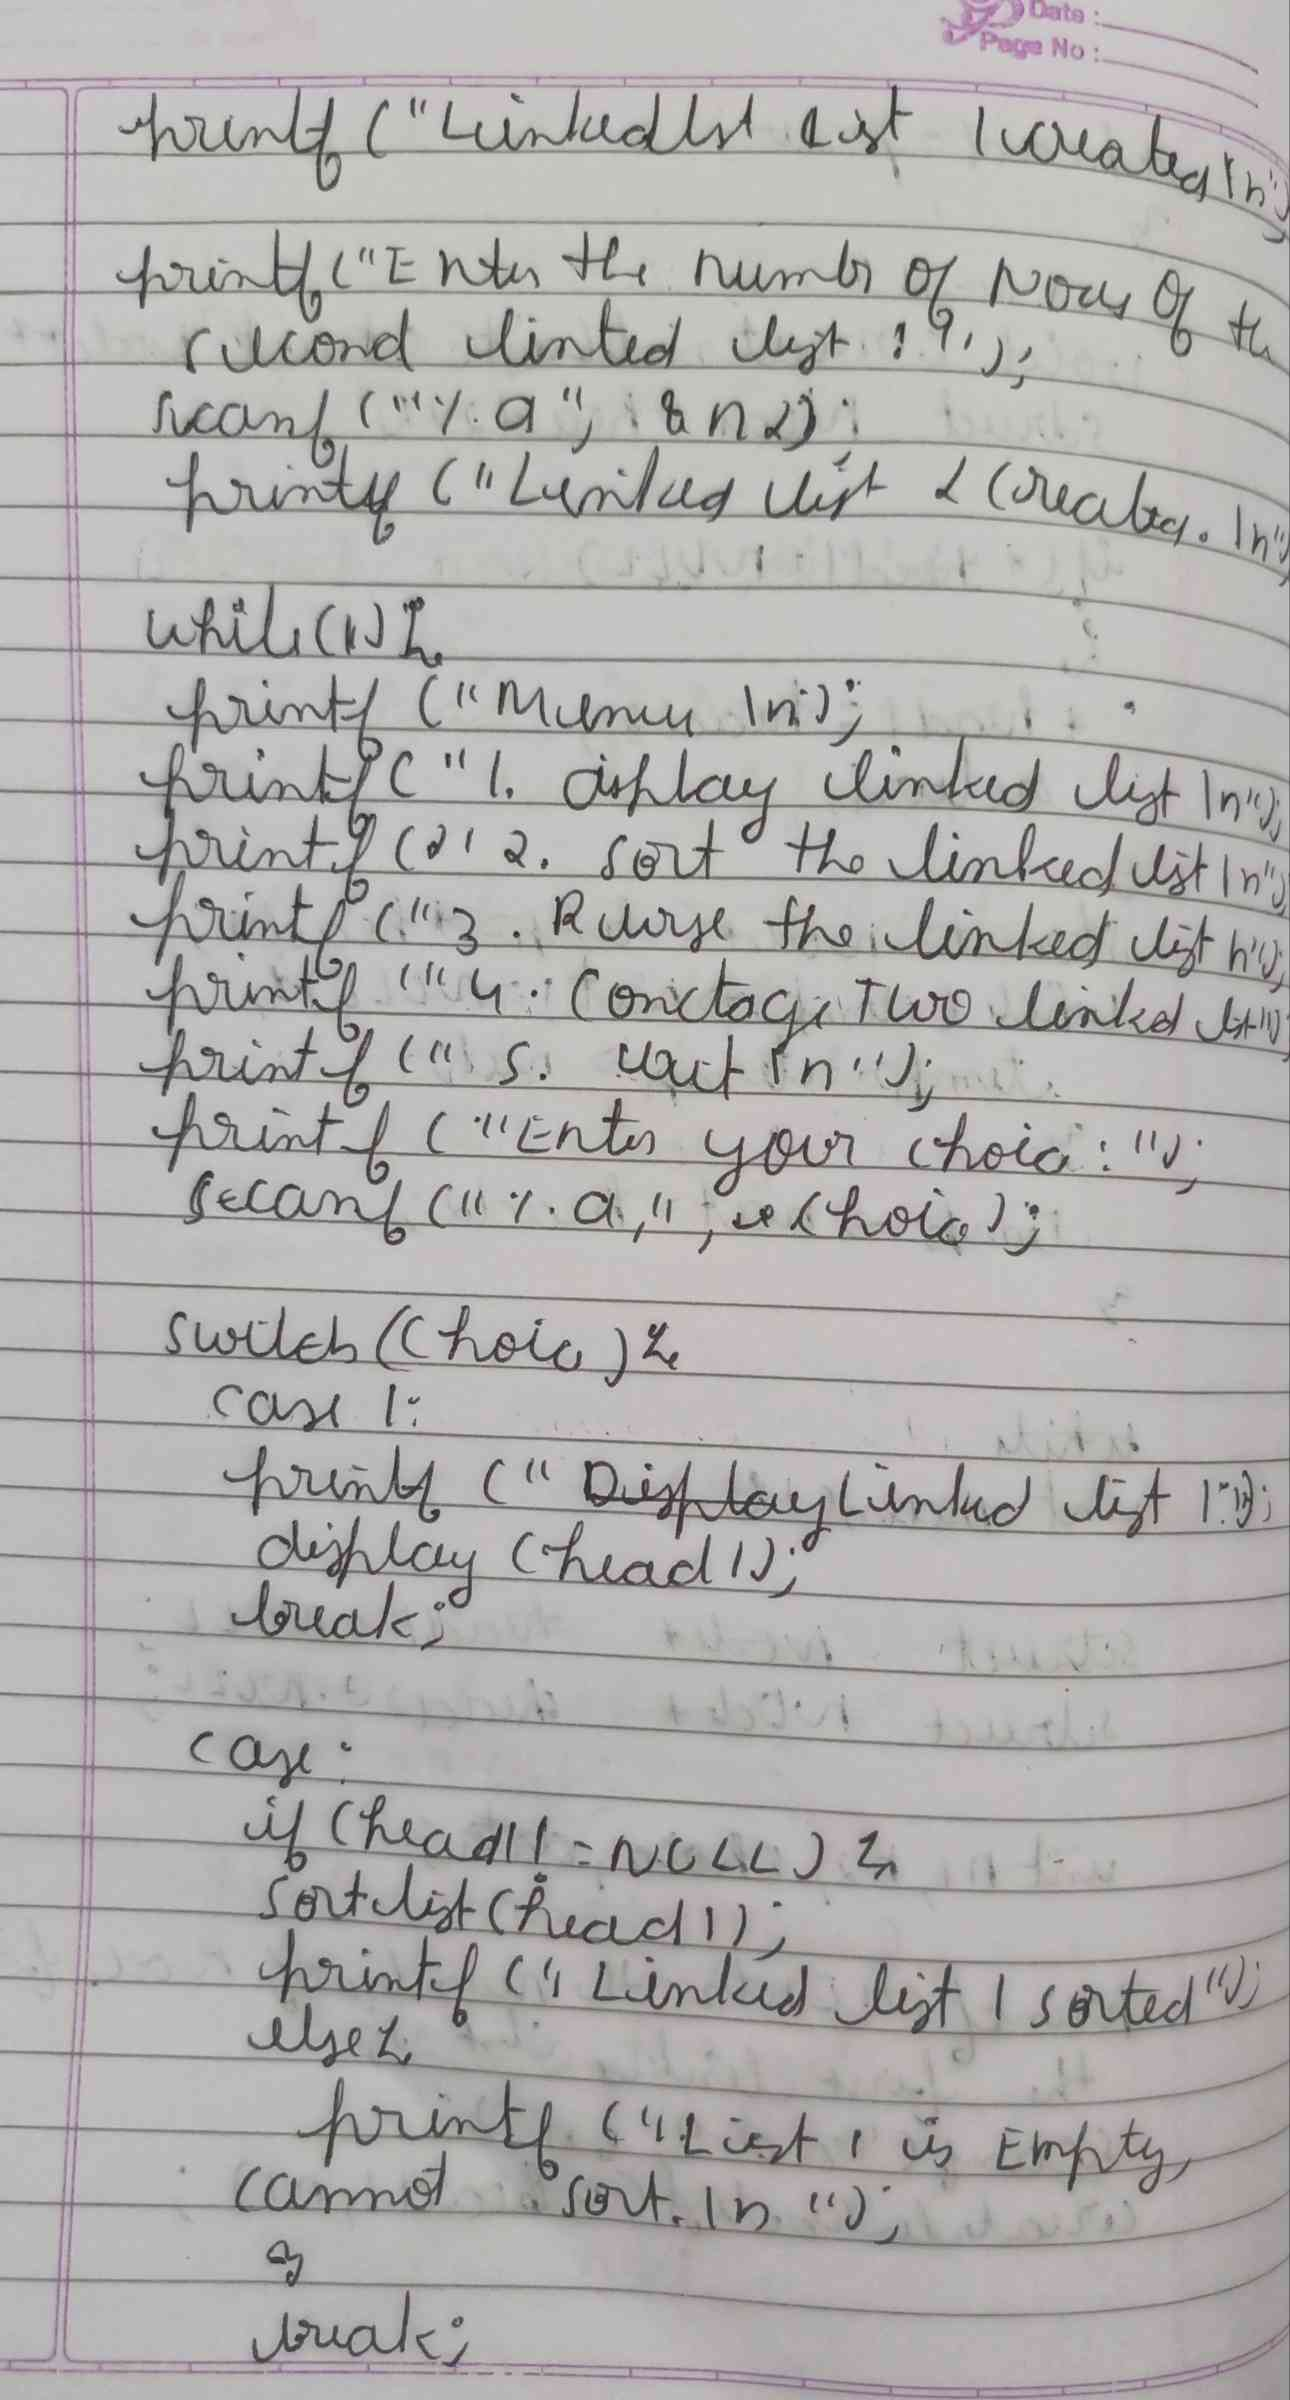 Date :
Page No :
printf ("Linkedlst List 1 created \n");
printf ("Enter the number of Nodes of the
second linked list : ");
scanf ("%d", &n2);
printf ("Linked list 2 created. \n"
while(1) {
printf ("Menu \n");
printf ("1. display linked list \n");
printf (" 2. sort the linked list \n");
printf ("3. Reverse the linked list \n");
printf ("4. Two linked list");
printf (" 5. exit \n");
printf ("Enter your choice : ");
scanf ("%d", &choice);
switch (choice) {
case 1:
printf (" Display Linked list 1:");
display (head1);
break;
case :
if (head1 != NULL) {
sortlist (head1);
printf (" Linked list 1 sorted");
else {
printf ("List 1 is Empty,
cannot sort. \n ");
}
break;